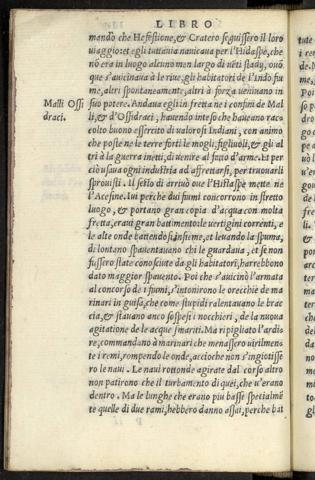 LIBRO
mandò che Hefestione, & Cratero seguissero il loro
uiaggio: et egli tuttauia nauicaua per l'Hidaspe, che
nō era in luogo alcuno men largo di uēti stadÿ, ouū
que s'auicinaua à le riue, gli habitatori de l'Indo fiu
me, altri spontaneamente, altri à forza ueniuano in
Malli Ossi
draci.
suo potere. Andaua egli in fretta ne i confini de Mal
li, & d'Ossidraci, hauendo inteso che haueano rac
colto buono essercito di ualorosi Indiani, con animo
che poste ne le terre forti le mogli, figliuoli, & gli al
tri à la guerra inetti, di uenire al fatto d'arme. Et per
ciò usaua ogni industria ad affrettarsi, per truouarli
sprouisti. Il sesto dì arriuò oue l'Hidaspe mette ne
l'Acesine. Iui perche dui fiumi concorrono in stretto
luogo, & portano gran copia d'acqua con molta
fretta, eraui gran battimento: le uertigini correnti, e
le alte onde battendosi insieme, et leuando la spuma,
di lontano spauentauano chi le guardaua, et se non
fussero state conosciute da gli habitatori, harrebbono
dato maggior spauento. Poi che s'auicinò l'armata
al concorso de i fiumi, s'intonirono le orecchie de ma
rinari in guisa, che come stupidi ralentauano le brac
cia, & stauano anco sospesi i nocchieri, de la nuoua
agitatione de le acque smariti. Ma ripigliato l'ardi-
re, commandano à marinari che menassero uirilmen-
te i remi, rompendo le onde, accioche non s'ingiottisse
ro le naui. Le naui rottonde agirate dal corso altro
non patirono che il turbamento di quei, che u'erano
dentro. Ma le lunghe che erano piu basse spetialmē
te quelle di due rami, hebbero danno assai, perche bat